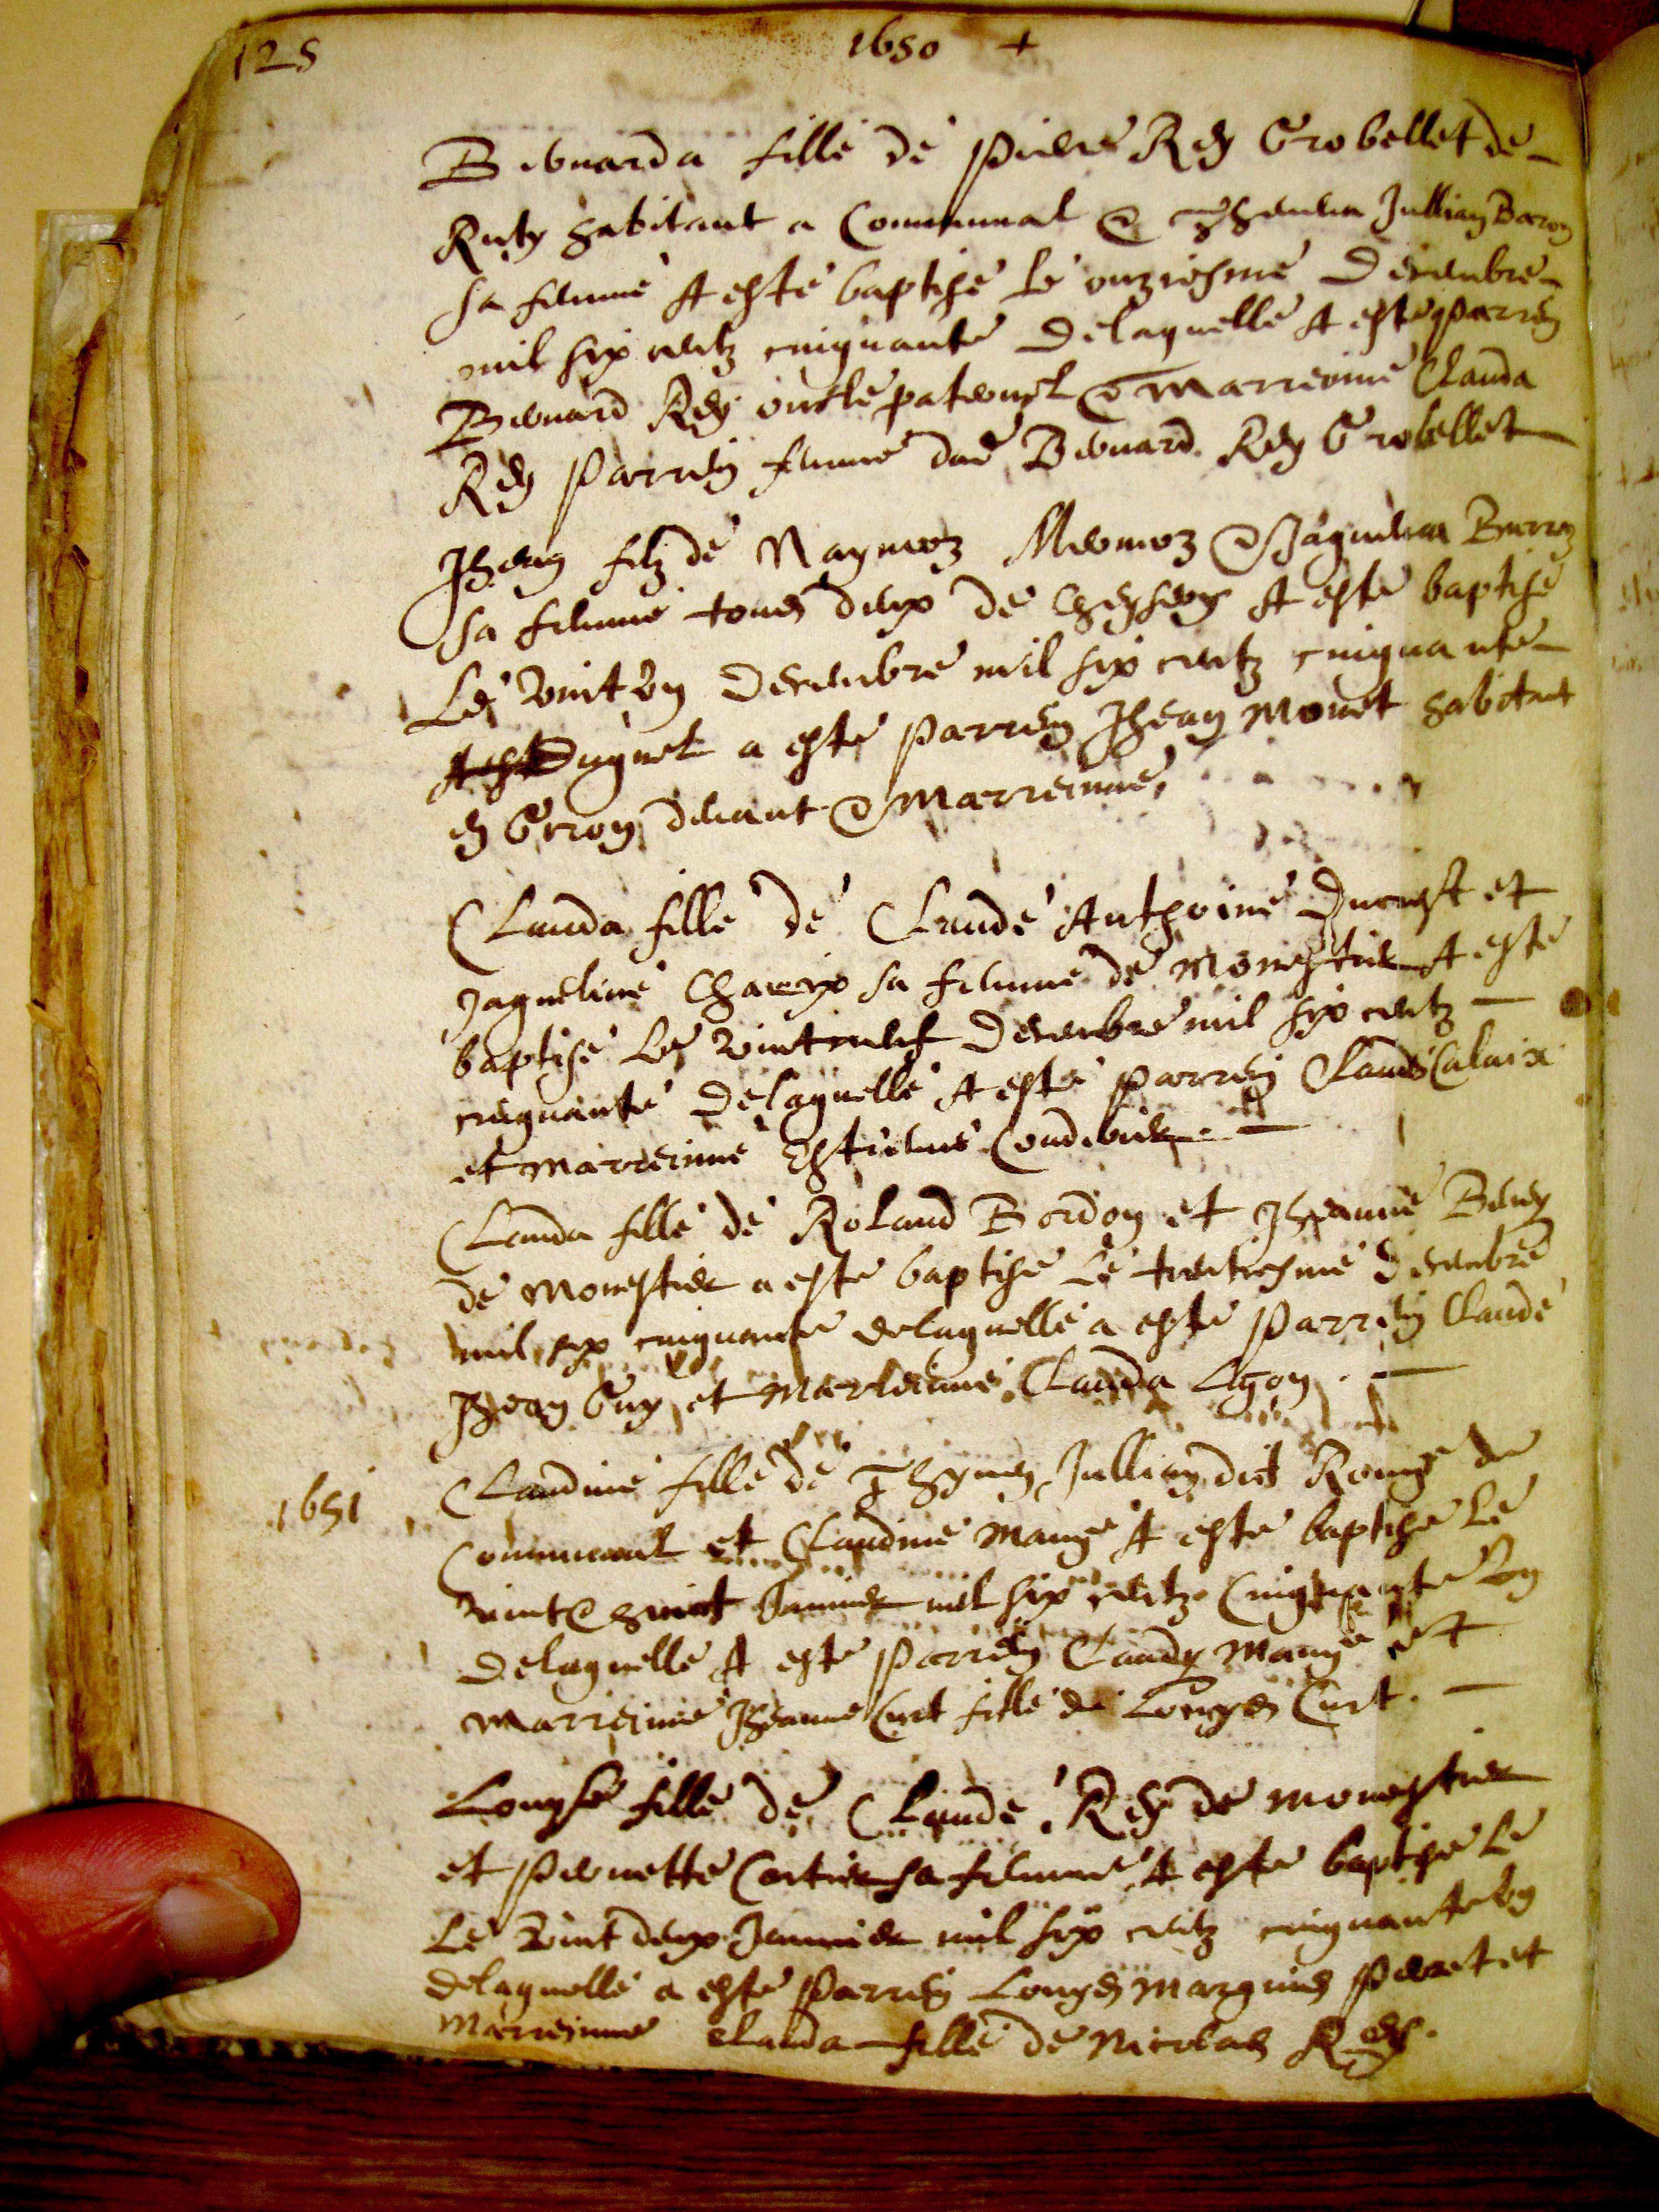 125
1650 +
Bernarda fille de Pierre Rey Grobellet de
Ruty habitant a Communal & Thevena Jullian Baron
sa femme A esté baptisé le onziesme Decembre
mil six centz cinquante Delaquelle A esté parrin
Bernard Rey oncle paternel & Marreinne Clauda
Rey Parrin femme dud Bernard Rey Grobellet
Jhean filz de Naymoz Mermoz & Jaquema
sa femme tous deux de A esté baptisé
Le vint un Decembre mil six centz cinquante
Duquel a esté Parrein Jhean Monet habitant
et Marreinne
Clauda fille de Claude Anthoine Ducrest et
Jaqueline Charrix sa femme de Monestier A esté
baptisé Le vint neuf Decembre mil six centz
cinquante Delaquelle A esté Parrein Claude Calaix
et Marreinne Estienne Conderier
Clauda fille de Roland Bordon et Jheanne Beney
de Monestier a esté baptisé Le trentiesme Decembre
mil six cinquante delaquelle a esté Parrein Claude
Jhean Guy et Marreinne Clauda
1651
Claudine fille de Jullian dit Rouge de
Communal et Claudine Mange A esté baptisé Le
vint & huict Janvier mil six centz Cinquante un
Delaquelle A esté Parrein Claude Mange et
Marreinne Jheanne Curt fille de Louys Curt.
Louyse fille de Claude Rey de Monestier
et Pernette Cartier sa femme A esté baptisé Le
Le vint deux Janvier mil six centz cinquante un
delaquelle a esté Parrein Louys Marquis Perret et
Marreinne Clauda fille de Nicolas Rey.